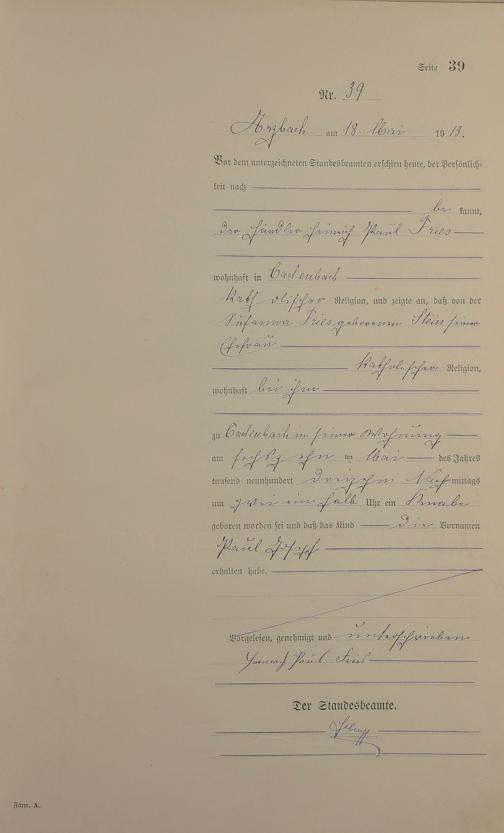 Seite 39
Nr. 39
Arzbach am 18. Mai 1913.
Vor dem unterzeichneten Standesbeamten erschien heute, der Persönlich-
keit nach
be kannt,
der Händler Heinrich Paul Fries
wohnhaft in Cadenbach
kath olischer Religion, und zeigte an, daß von der
Susanna Fries geborenen Stein seiner
Ehefrau
katholischer Religion,
wohnhaft bei ihm
zu Cadenbach in seiner Wohnung
am sechszehn ten Mai des Jahres
tausend neunhundert dreizehn Nach mittags
um zwei ein halb Uhr ein Knabe
geboren worden sei und daß das Kind die Vornamen
Paul Josef
erhalten habe.
Vorgelesen, genehmigt und unterschrieben
Heinrich Paul Fries
Der Standesbeamte.
Form. A.